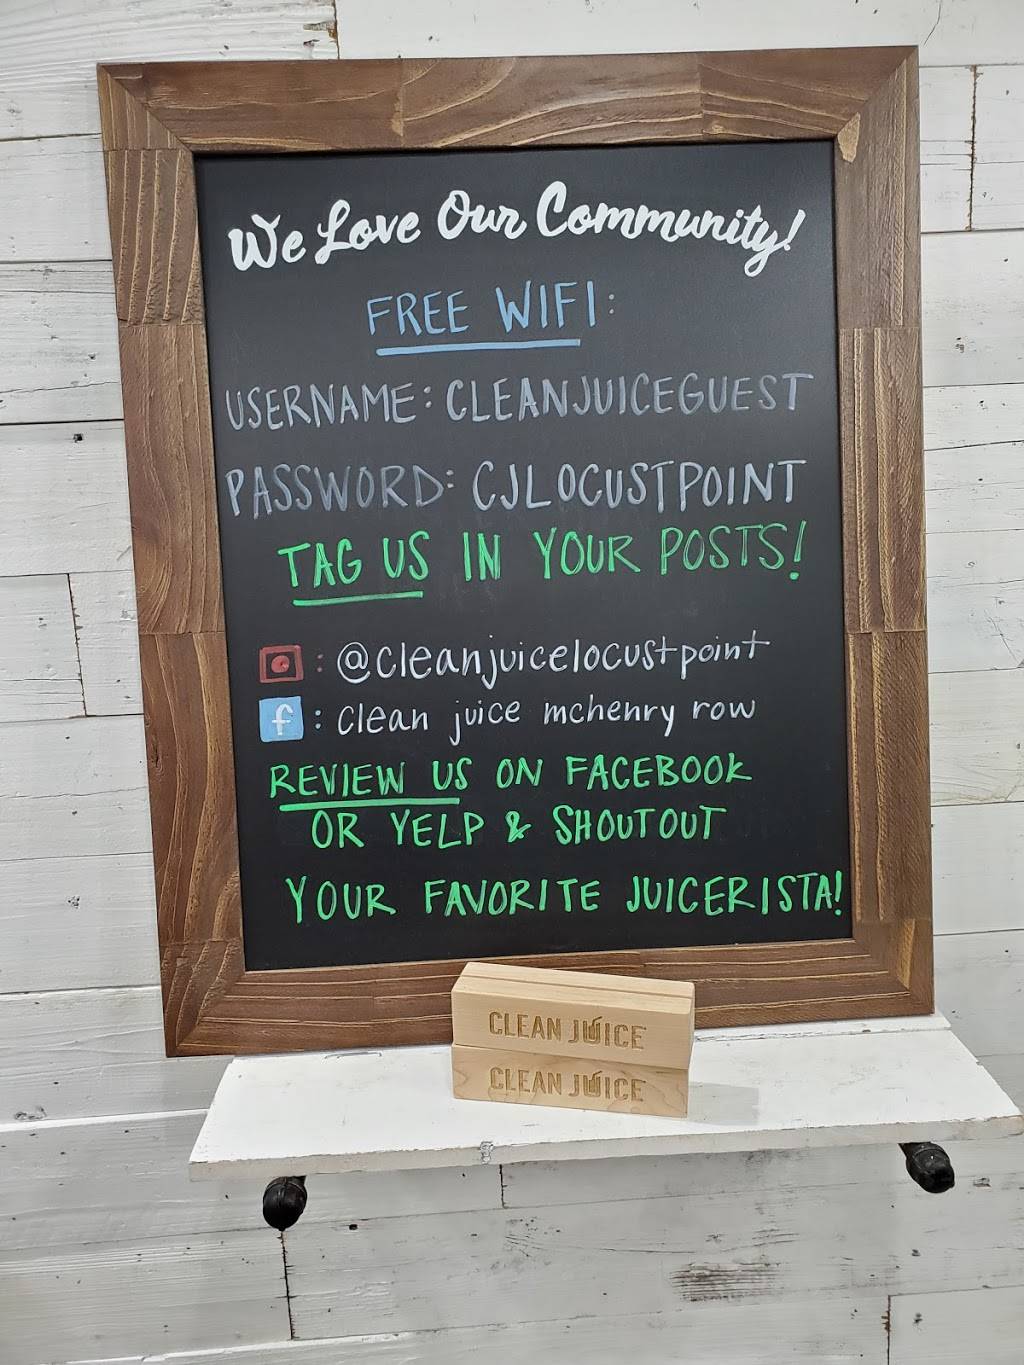 We Love Our Community!
FREE WIFI:
USERNAME: CLEANJUICEGUEST
PASSWORD: CJLOCUSTPOINT
TAG US IN YOUR POSTS!
: @cleanjuicelocustpoint
f : clean juice mchenry row
REVIEW US ON FACEBOOK
OR YELP & SHOUTOUT
YOUR FAVORITE JUICERISTA!
CLEAN JUICE
CLEAN JUICE